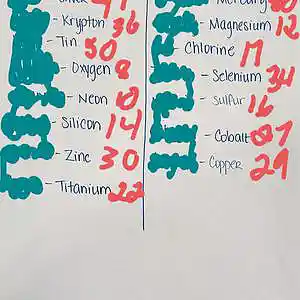 - Krypton 36
- Tin 50
- Oxygen 8
- Neon 10
- Silicon 14
- Zinc 30
- Titanium 22
Mercury 80
- Magnesium 12
- Chlorine 17
- Selenium 34
- Sulfur 16
- Cobalt 27
- Copper 29